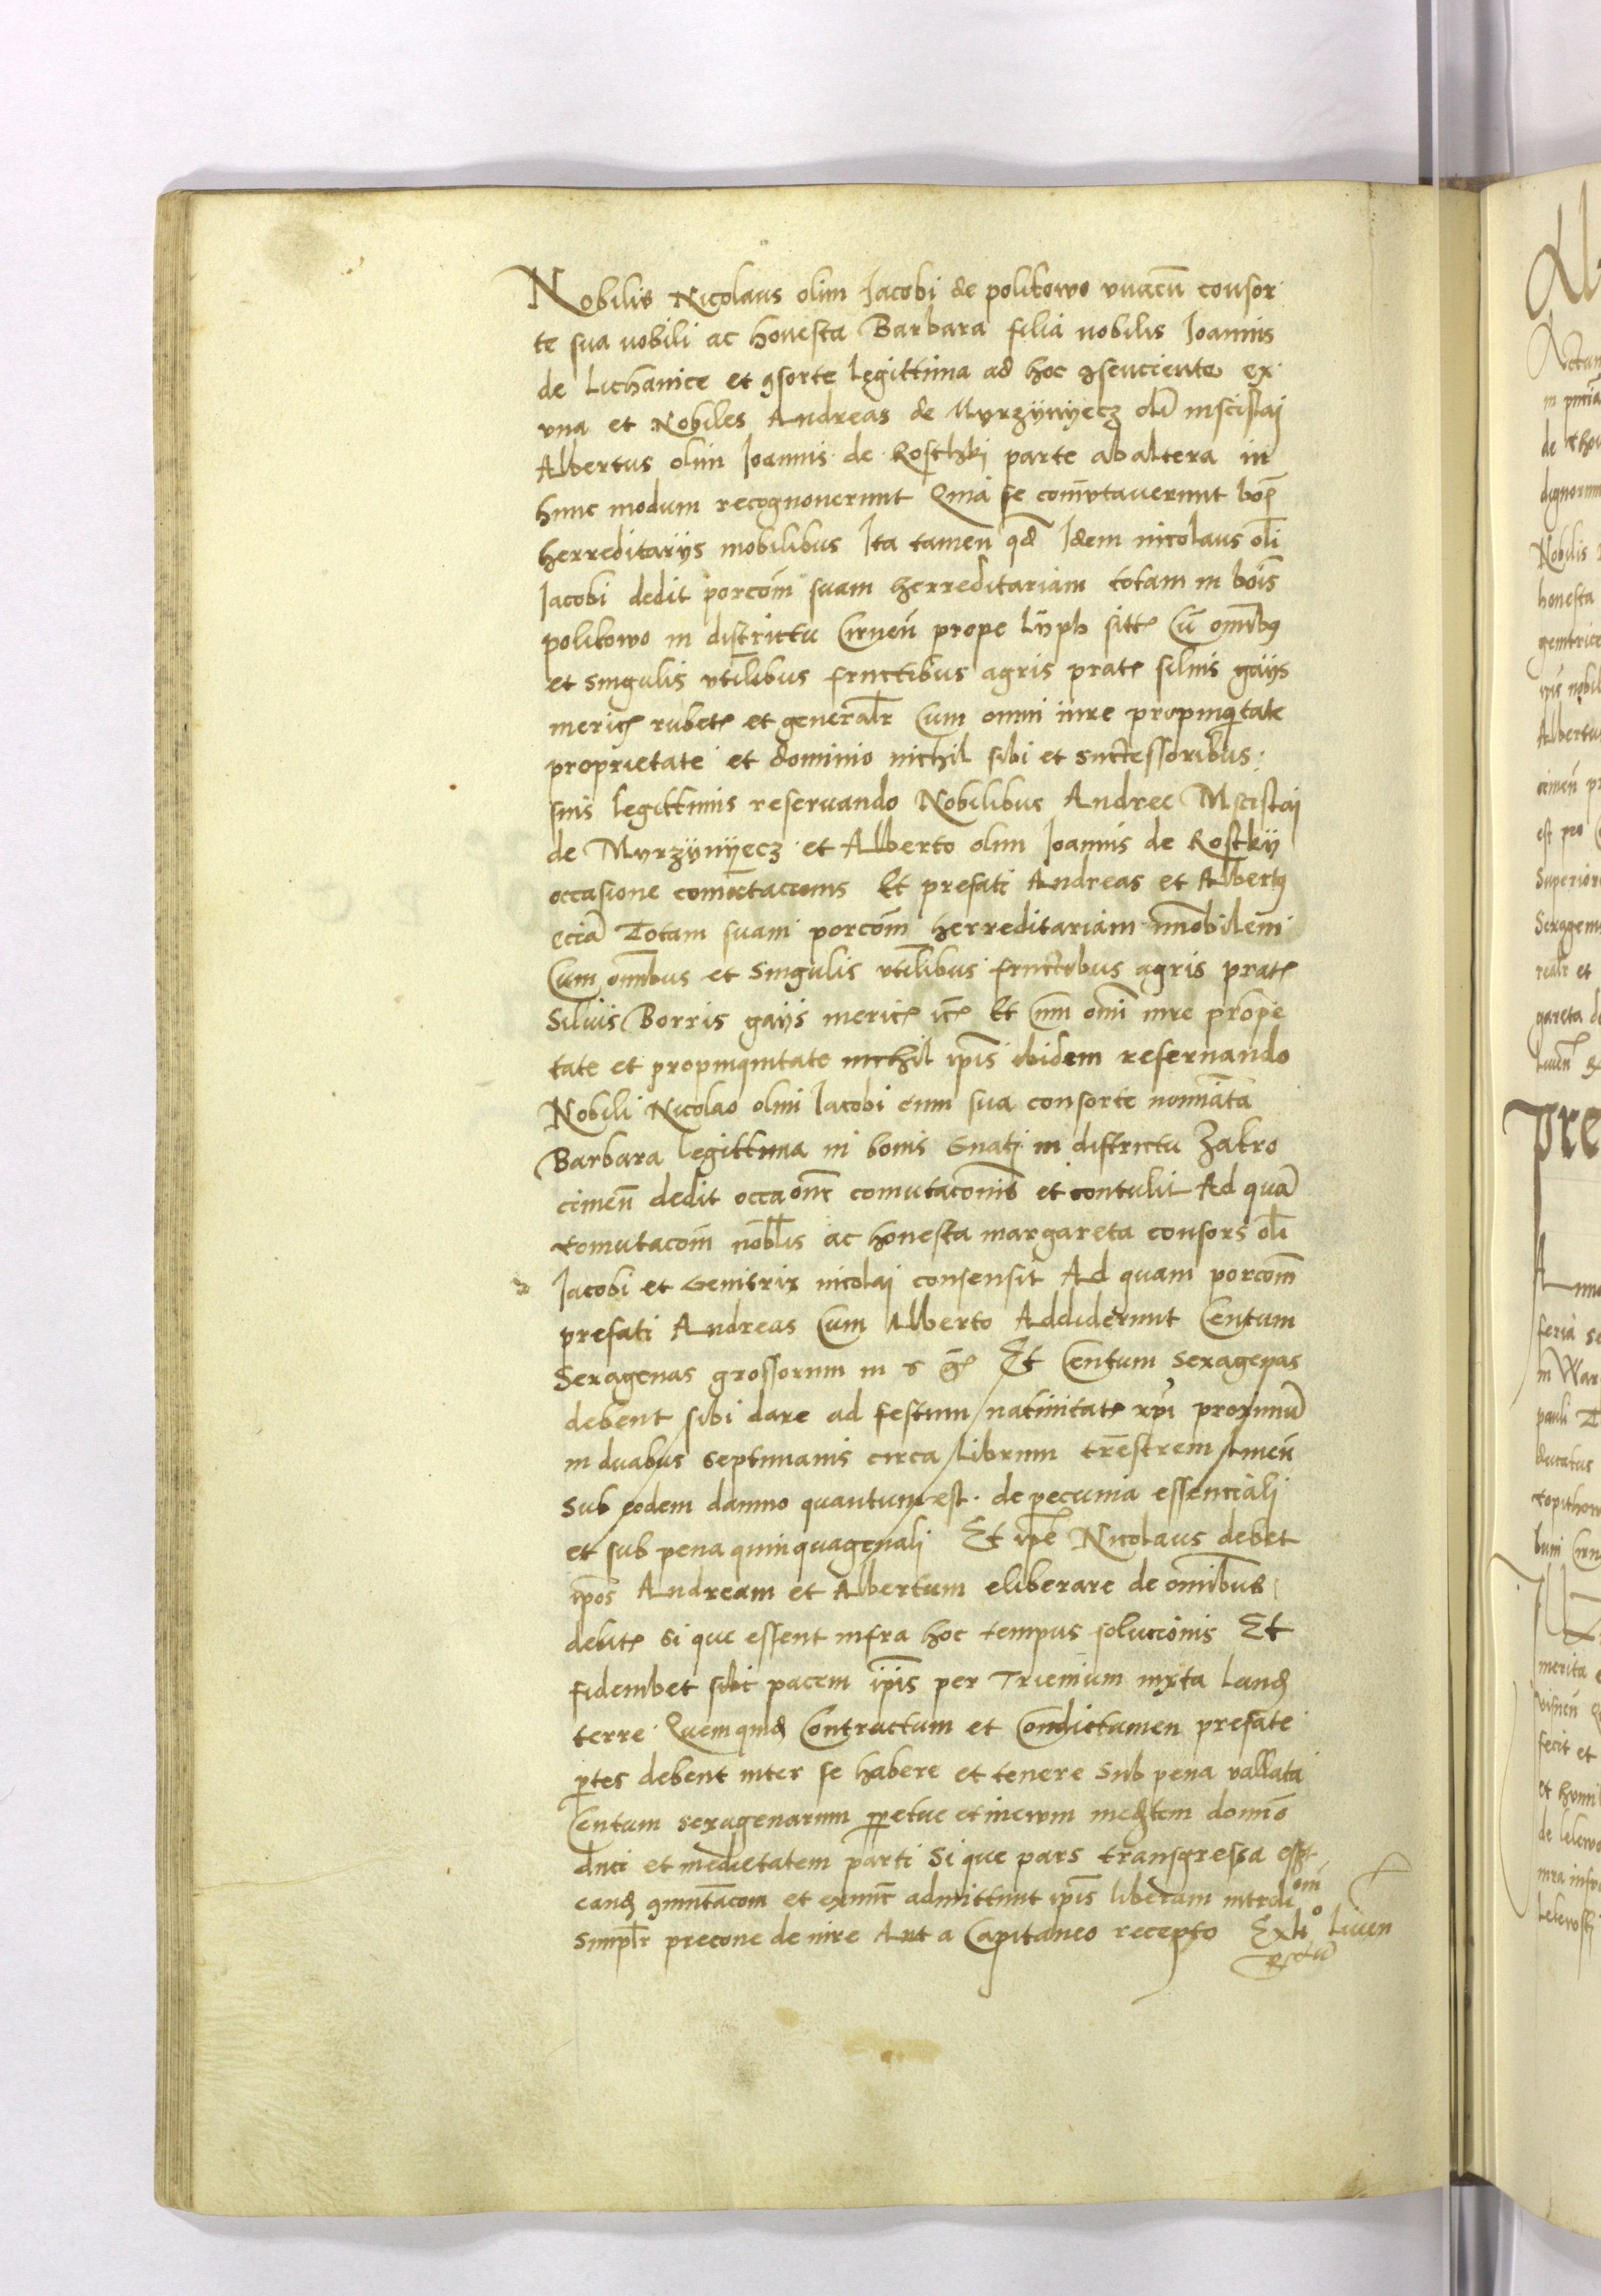 Nobilis Nicolaus olim Jacobi de politowo vnacū consor
te sua nobili ac honesta Barbara filia nobilis Joannis
de Lichanice et ꝯsorte legittima ad hoc ꝯsenciente ex
vna et Nobiles Andreas de Myrzÿnÿecz olī mscislai
Albertus olim Joannis de Roschki parte ab altera in
hunc modum recognouerunt Quia se com̄vtauerunt
herreditarÿs mobilibus Ita tamen qd Idem nicolaus olī
Jacobi dedit porcōm suam herreditariam totam in bōis
politowo in districtu Cirnen̄ prope Lÿph sitt Cū omībꝯ
et singulis vtilibus fructibus agris prat siluis gaÿs
meric rubet et generalr Cum omni iure propinqitate
proprietate et dominio nichil sibi et successoribus
suis legittimis reseruando Nobilibus Andree Mscislai
de Myrzÿnÿecz et Alberto olim Joannis de Rostkÿ
occasione comutacionis Et prefati Andreas et Albertꝯ
eciā Totam suam porcōm herreditariam immobilem
Cum omībus et singulis vtilibus fructibus agris prat
Siluis Borris gaÿs meric Et cum omī iure proprie
tate et propinquitate nichil ip̄is ibidem reseruando
Nobili Nicolao olim Jacobi cum sua consorte nominata
Barbara legittima in bonis Gnatÿ in districtu Zakro
cimen̄ dedit occaōne comutacōnis et contulit Ad quā
comutacōm nobl̄is ac honesta margareta consors olī
Jacobi et Genitrix nicolai consensit Ad quam porcōm
prefati Andreas Cum Alberto Addiderunt Centum
Sexagenas grossorum in Et Centum sexagenas
debent sibi dare ad festum natiuitat xpi proximū
in duabus septimanis circa Librum trēstrem Liuen̄
Sub eodem damno quantum est de pecunia essenciali
et sub pena quinquagenali Et ip̄e Nicolaus debet
ip̄os Andream et Albertum eliberare de omībus
debit si que essent infra hoc tempus solucionis Et
fidembet pacem ip̄is per Trienium iuxta Laud
terre Quemquid Contractum et Condictamen prefate
ꝑtes debent inter se habere et tenere Sub pena vallata
Centum sexagenarum ꝑpetue et in ewm domīo
duci et medietatem parti Si que pars transgressa esset
eand ꝯmutacōm et exnunc admittunt ip̄is liberam
Simplr precone de iure Aut a Capitaneo recepto Liuen